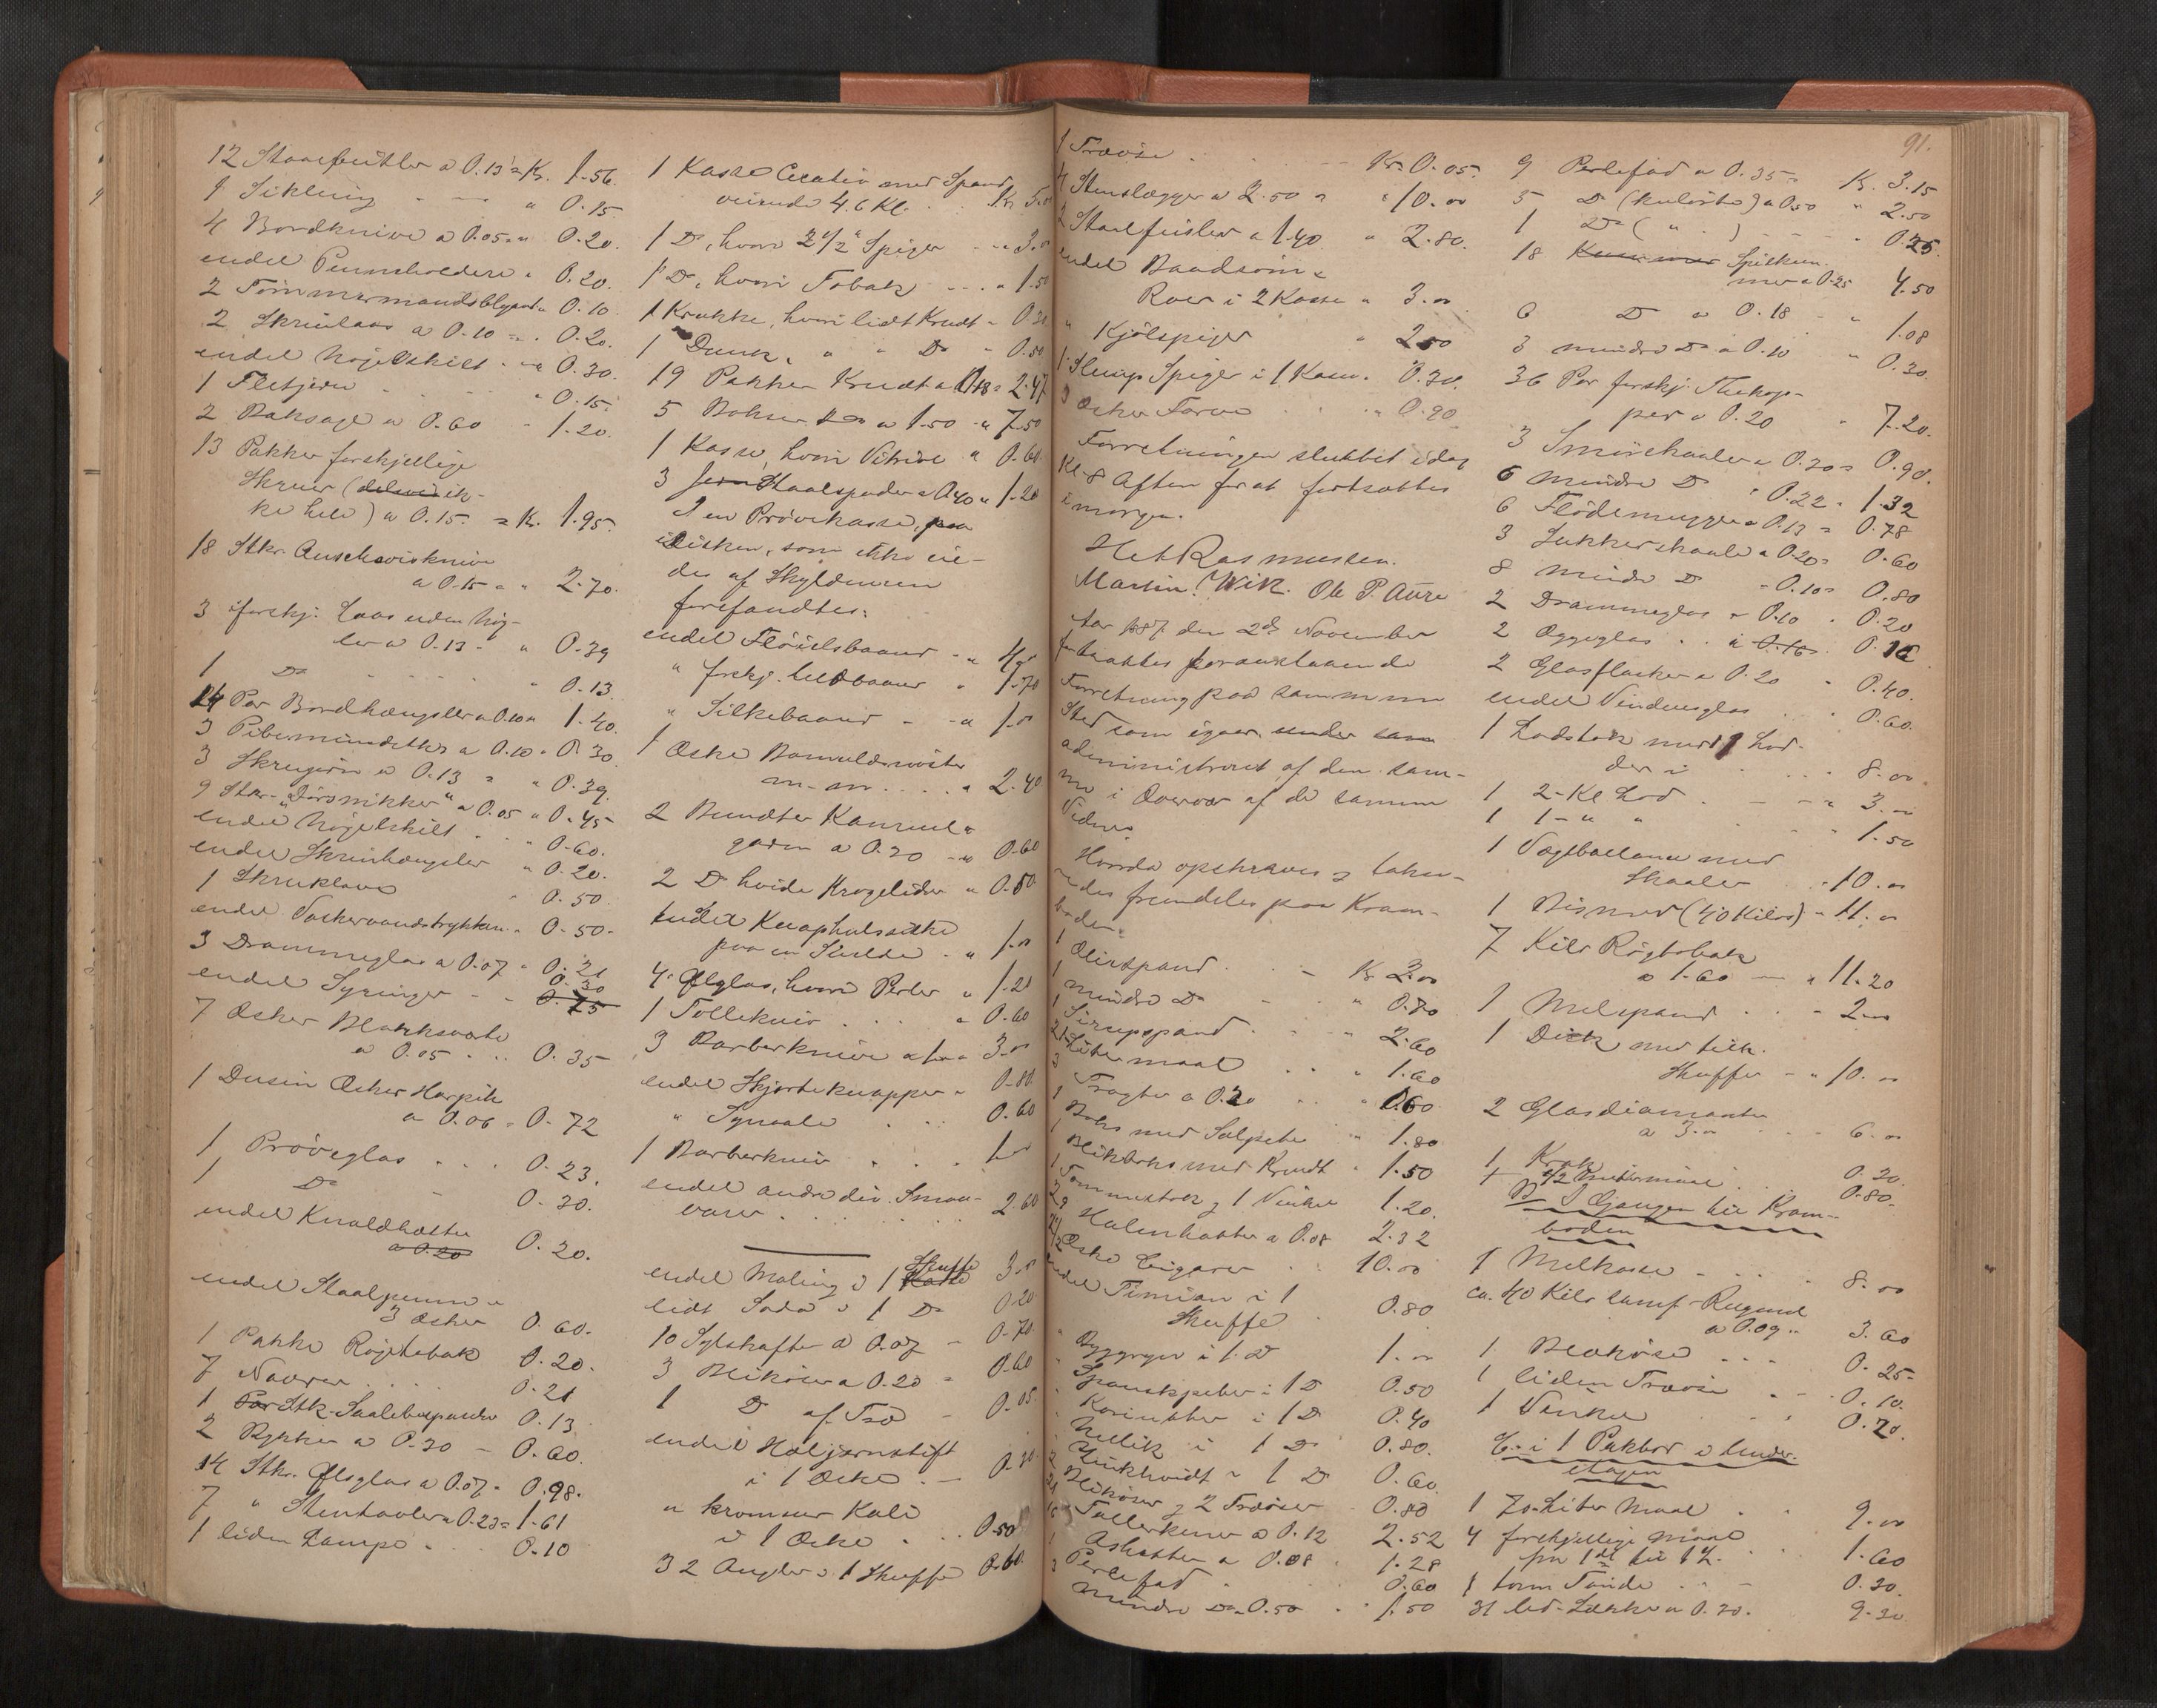 12 Staalfeithler a 0.13 = Kr. 1.56.
1 Sikling " 0.15
4 Bordknive a 0.05 = " 0.20.
endel Penneholdere " 0.20.
2 Tømmermandsblyant " 0.10.
2 Skrinlaas a 0.10 = " 0.20.
endel Nøgelskilt " 0.30.
1 Filtjern " 0.15.
2 Baksage a 0.60 " 1.20.
13 Pakker forskjellige
Skruer (delvis ik-
ke hele) a 0.15. = Kr. 1.95.
18 Stkr. Anschovisknive
a 0.15 = " 2.70.
3 forskj. Laas uden Nøg-
ler a 0.13 - " 0.39
1 Do " 0.13.
14 Par Bordhængsler a 0.10 = 1.40.
3 Pibemundstker a 0.10 = 0.30
3 Skrugjern a 0.13 = " 0.39.
9 Stkr. "Dørsnikker" a 0.05 " 0.45
endel Nøgelskilt " 0.60.
endel Skrinhængsler " 0.20.
1 Skruklave 0.50.
endel 0.50.
3 Drammeglas a 0.07 " 0.21
0.30
endel Syringer - - 0.75
7 Æsker Blanksværte
a 0.05 . .. 0.35
1 Dusin Æsker Harpik
a 0.06 = 0.72
1 Prøveglas . . . 0.23.
1 Do - 0.30.
endel Knaldhætter
a 0.20 0.20.
endel Staalpenne i
3 Æsker 0.60.
1 Pakke Røgtobak 0.20.
7 Navrer . . . . 0.21
1 Par Stk. 0.13
2 a 0.30 - 0.60.
14 Stkr. Ølsglas a 0.07. 0.98.
7 " Stentavler a 0.23 = 1.61
1 liden Lampe . . 0.10
1 Kasse Cecativ med Spand
veiende 4.6 Kl. Kr 5.00
1 Do, hvori 2 1/2" Spiger - " 3.00
1 Do, hvori Tobak - - - " 1.50
1 Krukke, hvori lidt Krudt " 0.30
1 Dunk, " " Do " 0.50.
19 Pakker Krudt a 0.13 = 2.47
5 Bokser Do a 1.50 " 7.50
1 Kasse, hvori Vitriol " 0.60
3 Jern Staalspader a 0.40 " 1.20
I en Prøvekasse, paa
Disken, som ikke eie-
des af Skyldneren
forefandtes:
endel Fløielsbaand - " 4.00
" forskj. Uldbaand " 1.70
" Silkebaand - - " 1.00
1 Æske Bomuldsnøster
m. m. . . . . " 2.40
2 Bundter Kamuld-
garn a 0.30 - " 0.60
2 Do hvide Krogelidser " 0.50.
endel Knaphulssilke
paa en Snelde - " 1.00
4 Ølglas, hvori Perler " 1.20
1 Tollekniv . . . " 0.60
3 Barberknive a 1.00 = 3.00
endel Skjorteknapper - 0.80.
" Synaale . . . 0.60
1 Barberkniv . . . 1.00
endel andre div. Smaa-
varer. . . . . . . 2.60
endel Maling i 1 Kasse Skuffe 3.00
lidt Soda i 1 Do 0.20
10 Sylskafter a 0.07 - 0.70.
3 Blikøser a 0.20 = 0.60
1 Do af Træ - 0.05.
endel Hæljernstift
i 1 Æske . - 0.30
" kromsur Kali
i 1 Æske . . . 0.50
32 Angler i 1 Skuffe 0.60.
91.
1 Træøse . . . - Kr. 0.05.
4 Stenslægger a 2.50 = " 10.00
2 Staalfeisler a 1.40. " 2.80.
endel Baadsøm &
Roer i 2 Kasser " 3.00
" Kjølspiger " 2.50
1 Slump Spiger i 1 Kasse. 0.30.
9 Æsker Farve . . " 0.90.
Forretningen sluttet idag
Kl. 8 Aften for at fortsættes
imorgen.
Het Rasmussen.
Martin Wik. Ole P. Aure
Aar 1887 den 2de November
fortsattes foranstaaende
Forretning paa samme
Sted som igaar, under samme
administreret af den sam-
me i Overvær af de samme
Vidner.
Hvorda opskreves og takse-
redes fremdeles paa Kram-
boden:
1 Oliespand . . - Kr 3.00
1 mindre Do - - " 0.80
1 Sirupspand . . - " 2.60
21 Litermaal . . " 1.60
3 Tragter a 0.20 . . " 0.60
1 Boks med Salpeter " 1.80
1 Blikboks med Krudt " 1.50
1 Tommestok og 1 Vinkel 1.20.
29 Halmhatter a 0.08 2.32
2 1/2 Æske Cigarer . . 10.00
endel Timian i 1
Skuffe . 0.80
" Byggryn i 1 Do 1.00
" Spanskpeber i 1 Do 0.50
" Korinther i 1 Do 0.40
" Nellik i 1 Do 0.80.
" Zinkhvidt i 1 Do 0.60.
2 Blikøser og 2 Træøser 0.80
21 Tallerkener a 0.12 2.52
16 Askatter a 0.08 . 1.28
1 Perlefad . . 0.60
3 mindre Do a 0.50 . . 1.50
9 Perlefad a 0.35 = Kr. 3.15
5 Do (kulørte) a 0.50 " 2.50
1 Do ( " ) - - - " 0.25.
18 Kummer Spilkum-
mer a 0.25 4.50
6 Do a 0.18 - " 1.08
3 mindre Do a 0.10 " 0.30.
36 Par forskj. Thekop-
per a 0.20 " 7.20.
3 Smørskaaler a 0.30 = 0.90.
6 mindre Do " 0.22 = 1.32
6 Flødemugger a 0.13 = 0.78
3 Sukkerskaale a 0.20 = 0.60
8 mindre Do - 0.10 = 0.80
2 Drammeglas a 0.10 . 0.20
2 Æggeglas . . a 0.16. 0.16
2 Glasflasker a 0.20 " 0.40.
endel Vinduesglas . . " 0.60.
1 Lodstok med 7 Lod-
der i . . . . 8.00.
1 2-Kl Lod . . - " 3.00
1 1- " " " 1.50
1 Vægtballance med
Skaaler " 10.00
1 Bismer (40 Kilos) " 11.00
7 Kilo Røgtobak
a 1.60 - " 11.20
1 Melspand . . . " 2.00
1 Disk med tilh.
Skuffer - " 10.00
2 Glasdiamanter
a 3.00 . . . 6.00
1 Krak . . 0.30.
1 1/2 Metermaal . . . 0.80.
B. I Gangen til Kram-
boden
1 Melkasse - . . . 8.00
ca. 40 Kilo samf. Rugmel
a 0.09 " 3.60
1 Blikøse . . . 0.25-
1 liden Træøse . - . 0.10.
1 Vinkel . . 0.20.
C. i 1 Pakbod i Under-
etagen
1 70-Liter Maal . . 9.00
4 forskjellige Maal
fra 1 dl til 1 L. . . 1.60
1 tom Tønde . . - 0.30.
31 led. Sække a 0.30. 9.30